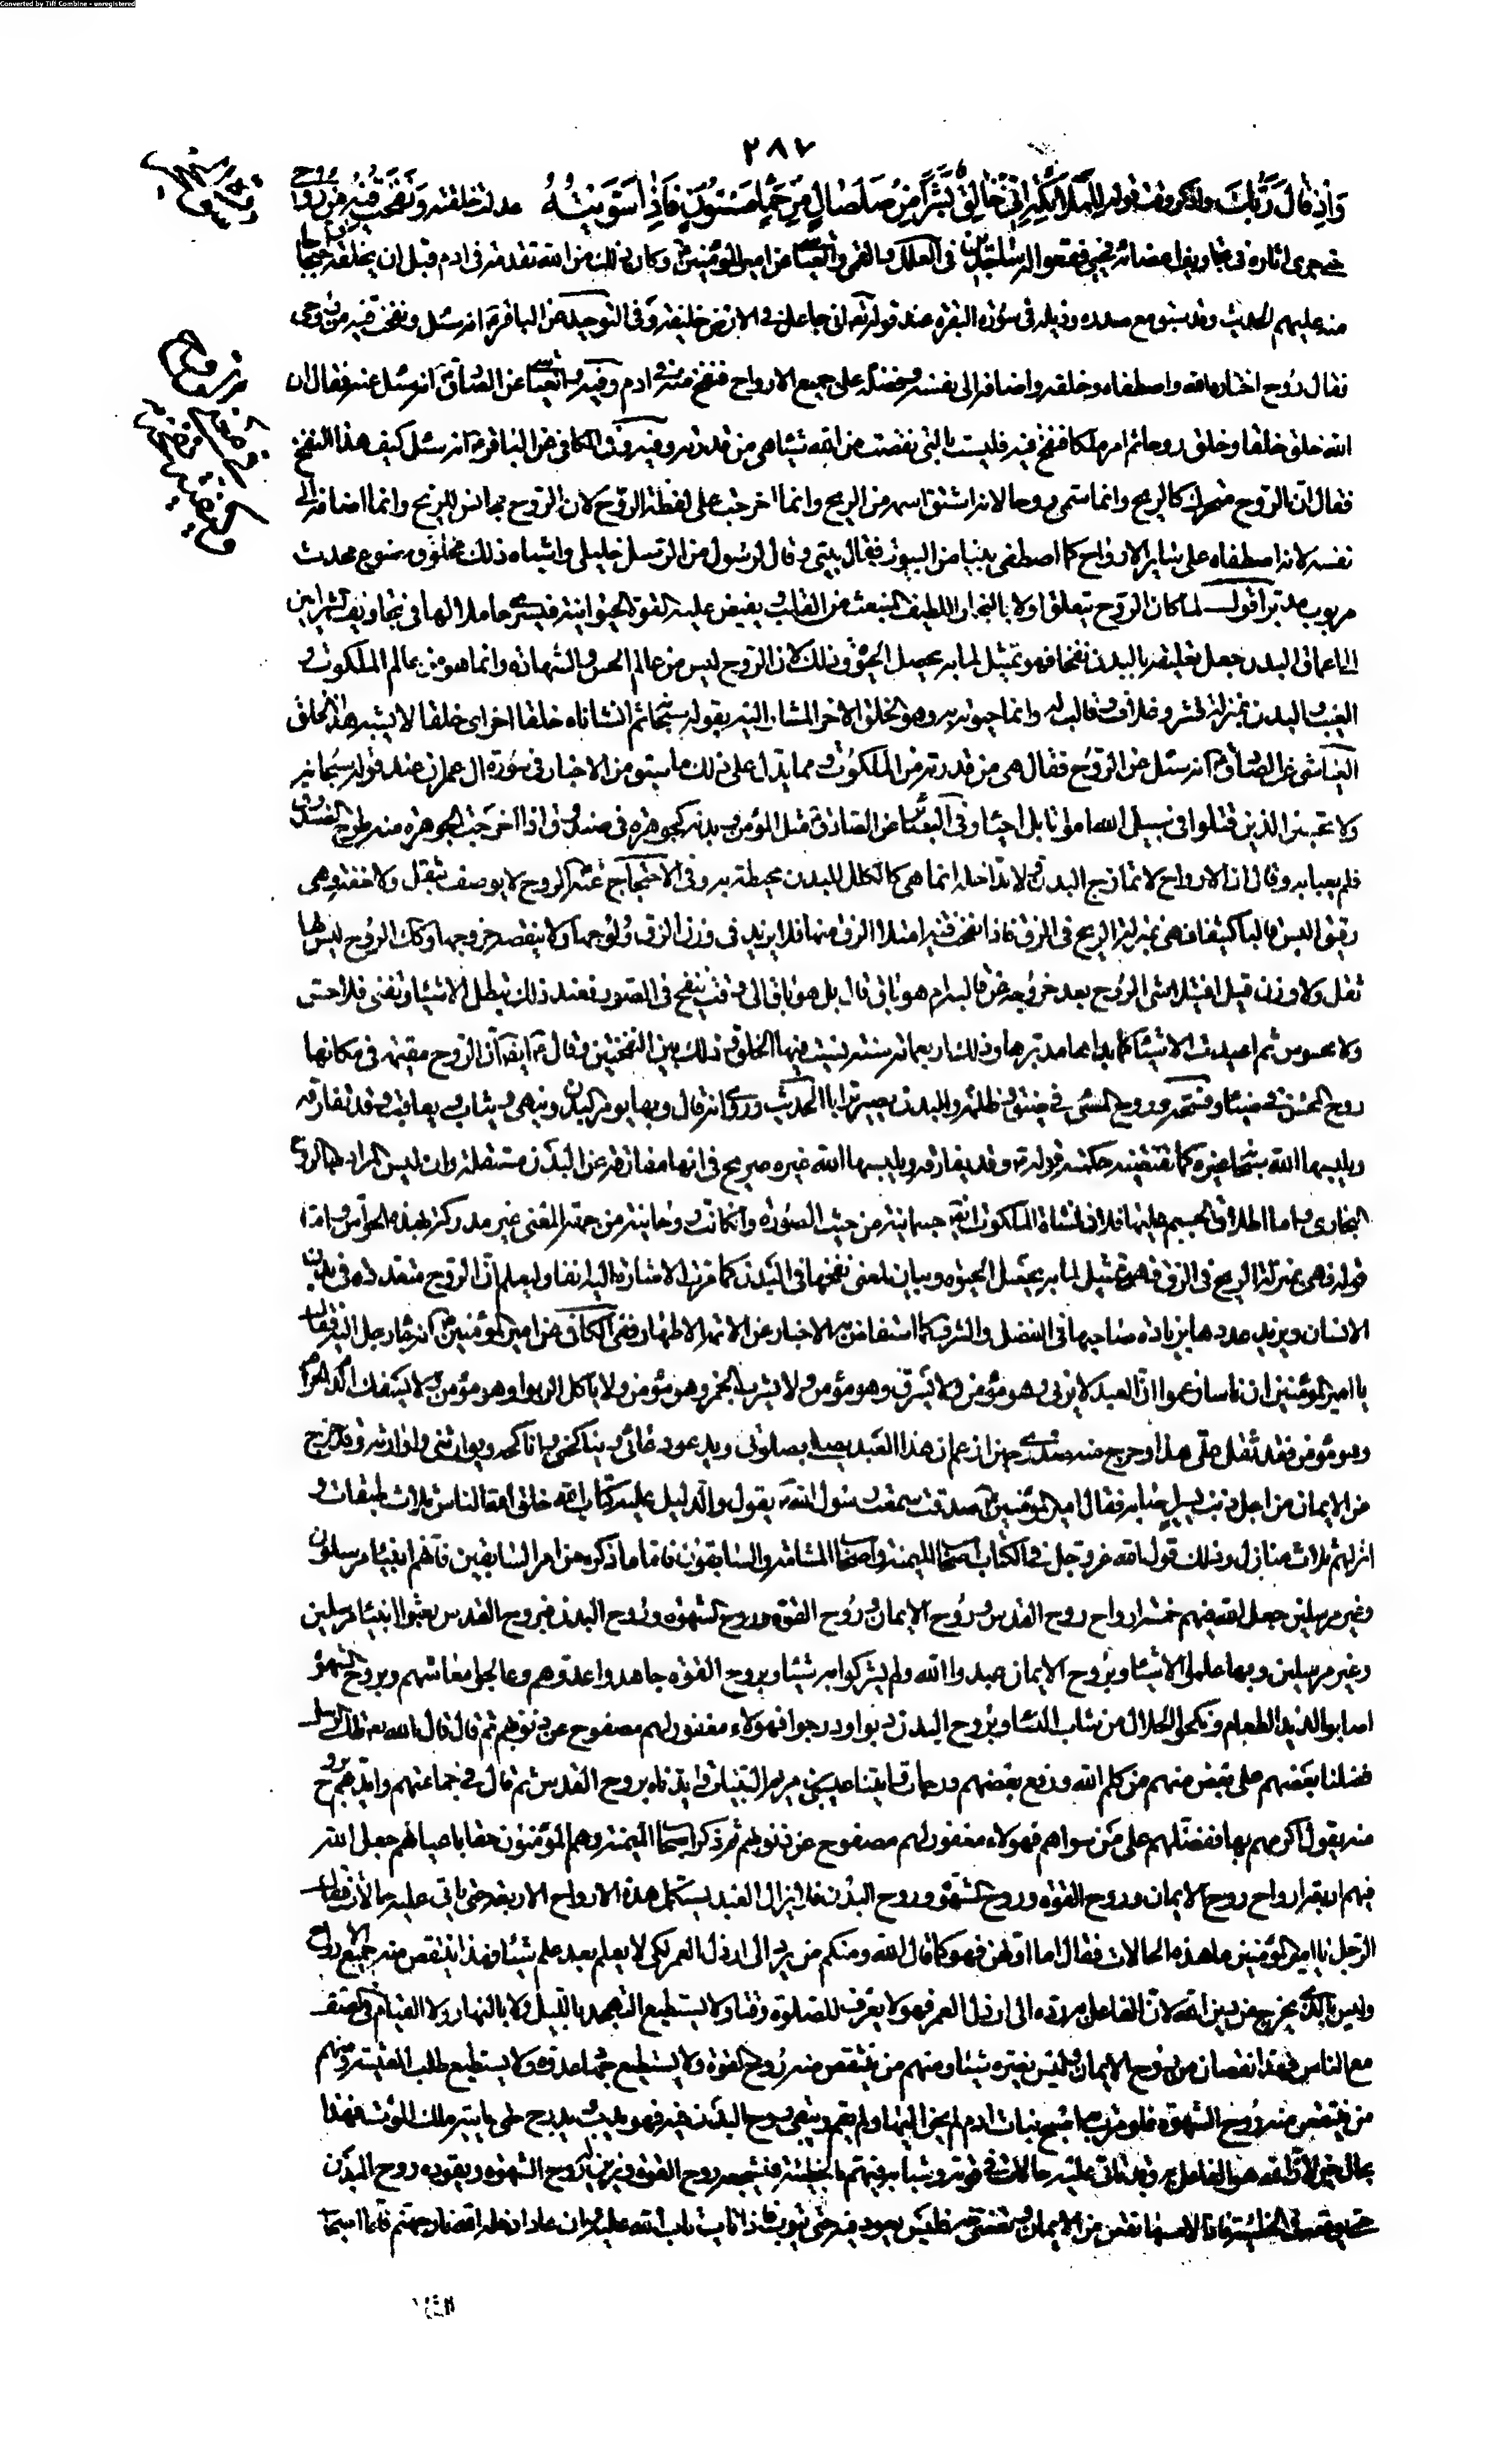 Converted by Tiff Combine - unregistered
٢٨٧
وَاِذْ قَالَ رَبُّكَ واذكر وقت قوله لِلْمَلَائِكَةِ اِنّى خَالِقٌ بَشَراً مِنْ صَلْصَالٍ مِنْ حَمَإٍ مَسْنُونٍ فَاِذَا سَوَّيْتُهُ عدلت خلقته وَنَفَخْتُ فيهِ مِنْ رُوحى
حتى جرى اثاره فى تجاويف اعضائه فحيى فقعوا له ساجدين فى العلل والقمى والعياشى عن امير المؤمنين وكان ذلك من الله تقدمة فى ادم قبل ان يخلقه احتجاجا
منه عليهم الحديث وقد سبق مع صدره وذيله فى سورة البقرة عند قوله تع انى جاعل فى الارض خليفة وفى التوحيد عن الباقر ع انه سئل ونفخت فيه من روحى
فقال روح اختاره الله واصطفاه وخلقه واضافه الى نفسه وفضله على جميع الارواح فنفخ منه فى ادم وفيه والعياشى عن الصادق ع انه سئل عنه فقال ان
الله خلق خلقا وخلق روحا ثم امر ملكا فنفخ فيه فليست بالتى نقصت من الله شيئا هى من قدرته وفيه وفى الكافى عن الباقر ع انه سئل كيف هذا النفخ
فقال ان الروح متحرك كالريح وانما سمى روحا لانه اشتق اسمه من الريح وانما اخرجت على لفظة الروح لان الروح مجانس للريح وانما اضافه الى
نفسه لانه اصطفاه على ساير الارواح كما اصطفى بيتا من البيوت فقال بيتى وقال لرسول من الرسل خليلى واشباه ذلك مخلوق مصنوع محدث
مربوب مدبر اقول لما كان الروح يتعلق اولا بالبخار اللطيف المنبعث من القلب و يفيض عليه القوة الحيوانية فيسرى حاملا لها فى تجاويف الشرايين
الى اعماق البدن جعل تعليقه بالبدن نفخا فهو تمثيل لما به يحصل الحيوة وذلك لان الروح ليس من عالم الحس والشهادة وانما هو من عالم الملكوت و
الغيب والبدن بمنزلة قشر وغلاف وقالب له وانما حيوته به وهو الخلق الاخر المشار اليه بقوله سبحانه ثم انشاناه خلقا اخر اى خلقا لا يشبه هذا الخلق
العياشى عن الصادق ع انه سئل عن الروح فقال هى من قدرته من الملكوت و مما يدل على ذلك ما سبق من الاخبار فى سورة ال عمران عند قوله سبحانه
ولا تحسبن الذين قتلوا فى سبيل الله امواتا بل احياء وفى البصائر عن الصادق ع مثل المؤمن و بدنه كجوهرة فى صندوق اذا اخرجت الجوهرة منه طرح الصندوق
فلم يعبا به وقال ان الارواح لا تمازج البدن ولا تداخله انما هى كالكلل للبدن محيطة به وفى الاحتجاج عنه ع الروح لا يوصف بثقل ولا خفة وهى
رقيق البس قالبا كثيفا فهى بمنزلة الريح فى الزق فاذا نفخت فيه امتلا الزق منها فلا يزيد فى وزن الزق ولوجها ولا ينقصه خروجها وكك الروح ليس لها
ثقل ولا وزن قيل افيتلاشى الروح بعد خروجه عن قالبه ام هو باق قال بل هو باق الى وقت ينفخ فى الصور فعند ذلك تبطل الاشياء وتفنى فلا حس
ولا محسوس ثم اعيدت الاشياء كما بداها مدبرها وذلك اربعمائة سنة نسيت فيها الخلق و ذلك بين النفختين وقال ع ايضا ان الروح مقيمة فى مكانها
روح المحسن فى ضياء وفسحة وروح المسئ فى ضيق وظلمة والبدن يصير ترابا الحديث وروى انه قال وبها يؤمر البدن وينهى و يثاب و يعاقب وقد تفارقه
ويلبسها الله سبحانه غيره كما تقتضيه حكمته قوله ع وقد يفارقه ويلبسها الله غيره صريح فى انها مفارقة عن البدن مستقلة وان ليس المراد بها الروح
البخارى واما اطلاق الجسم عليها فلان نشاة الملكوت ايضا جسمانية من حيث الصورة وان كانت روحانية من جهة المعنى غير مدركة بهذه الحواس واما
قوله فهى بمنزلة الريح فى الزق فهو تمثيل لما به يحصل الحيوة وبيان لمعنى نفخها فى البدن كما مرت الاشارة اليه انفا وليعلم ان الروح متعددة فى بدن
الانسان ويزيد عددها بزيادة صاحبها فى الفضل والشرف كما استفاضت به الاخبار عن الائمة الاطهار ففى الكافى عن امير المؤمنين ع انه جاء رجل اليه فقال
يا امير المؤمنين ان ناسا زعموا ان العبد لا يزنى وهو مؤمن ولا يسرق وهو مؤمن ولا يشرب الخمر وهو مؤمن ولا ياكل الربوا وهو مؤمن ولا يسفك الدم الحرام
وهو مؤمن فقد ثقل على هذا وحرج منه صدرى حين ازعم ان هذا العبد يصلى بصلوتى ويدعو دعائى ويناكحنى واناكحه ويوارثنى واوارثه وقد خرج
من الايمان من اجل ذنب يسير اصابه فقال امير المؤمنين ع صدقت سمعت رسول الله ص يقول والدليل عليه كتاب الله خلق الله الناس ثلاث طبقات و
انزلهم ثلاث منازل وذلك قول الله عز وجل فى الكتاب اصحاب الميمنة واصحاب المشئمة والسابقون فاما ما ذكره من امر السابقين فانهم انبياء مرسلون
وغير مرسلين جعل الله فيهم خمسة ارواح روح القدس و روح الايمان و روح القوة و روح الشهوة وروح البدن فبروح القدس بعثوا انبياء مرسلين
وغير مرسلين وبها علموا الاشياء وبروح الايمان عبدوا الله ولم يشركوا به شيئا وبروح القوة جاهدوا عدوهم وعالجوا معاشهم وبروح الشهوة
اصابوا لذيذ الطعام ونكحوا الحلال من شباب النساء وبروح البدن دبوا ودرجوا فهولاء مغفور لهم مصفوح عن ذنوبهم ثم قال قال الله تع تلك الرسل
فضلنا بعضهم على بعض منهم من كلم الله ورفع بعضهم درجات واتينا عيسى بن مريم البينات وايدناه بروح القدس ثم قال فى جماعتهم وايدهم بروح
منه يقول اكرمهم بها ففضلهم على من سواهم فهولاء مغفور لهم مصفوح عن ذنوبهم ثم ذكر اصحاب الميمنة وهم المؤمنون حقا باعيانهم جعل الله
فيهم اربعة ارواح روح الايمان وروح القوة وروح الشهوة وروح البدن فلا يزال العبد يستكمل هذه الارواح الاربعة حتى ياتى عليه حالات فقال
الرجل يا امير المؤمنين ما هذه الحالات فقال اما اوليهن فهو كما قال الله ومنكم من يرد الى ارذل العمر لكى لا يعلم بعد علم شيئا فهذا ينتقص منه جميع الارواح
وليس بالذى يخرج من دين الله لان الفاعل به رده الى ارذل العمر فهو لا يعرف للصلوة وقتا ولا يستطيع التهجد بالليل ولا بالنهار ولا القيام فى الصف
مع الناس فهذا نقصان من روح الايمان وليس يضره شيئا ومنهم من ينتقص منه روح القوة ولا يستطيع جهاد عدوه ولا يستطيع طلب المعيشة ومنهم
من ينتقص منه روح الشهوة فلو مرت به اصبح بنات ادم لم يحن اليها ولم يقم ويبقى روح البدن فيه فهو يدب ويدرج حتى ياتيه ملك الموت فهذا
بحال خير لان الله هو الفاعل به وقد تاتى عليه حالات فى قوته وشبابه فيهم بالخطيئة فيشجعه روح القوة ويزين له روح الشهوة ويقوده روح البدن
حتى يوقعه فى الخطيئة فاذا لامسها نقص من الايمان وتفصى منه فليس يعود فيه حتى يتوب فاذا تاب تاب الله عليه وان عاد ادخله الله نار جهنم فاما اصحاب